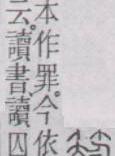 本作罪。今依
云。讀書、讀囚